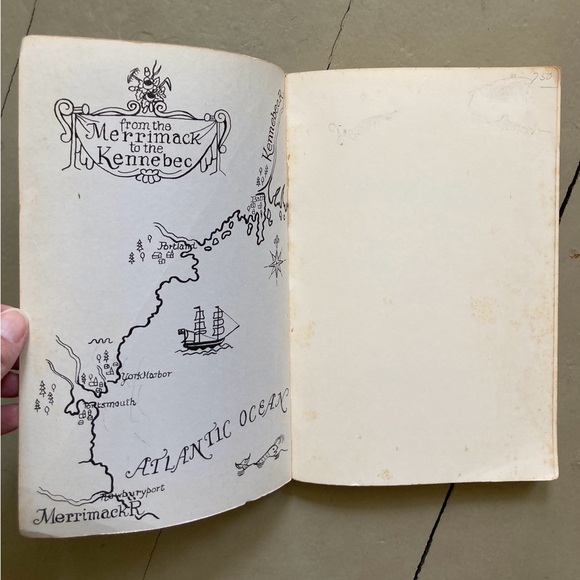 from the
Merrimack
to the
Kennebec
Kennebec R
Portland
York Harbor
Portsmouth
ATLANTIC OCEAN
Newburyport
Merrimack R.
7.50